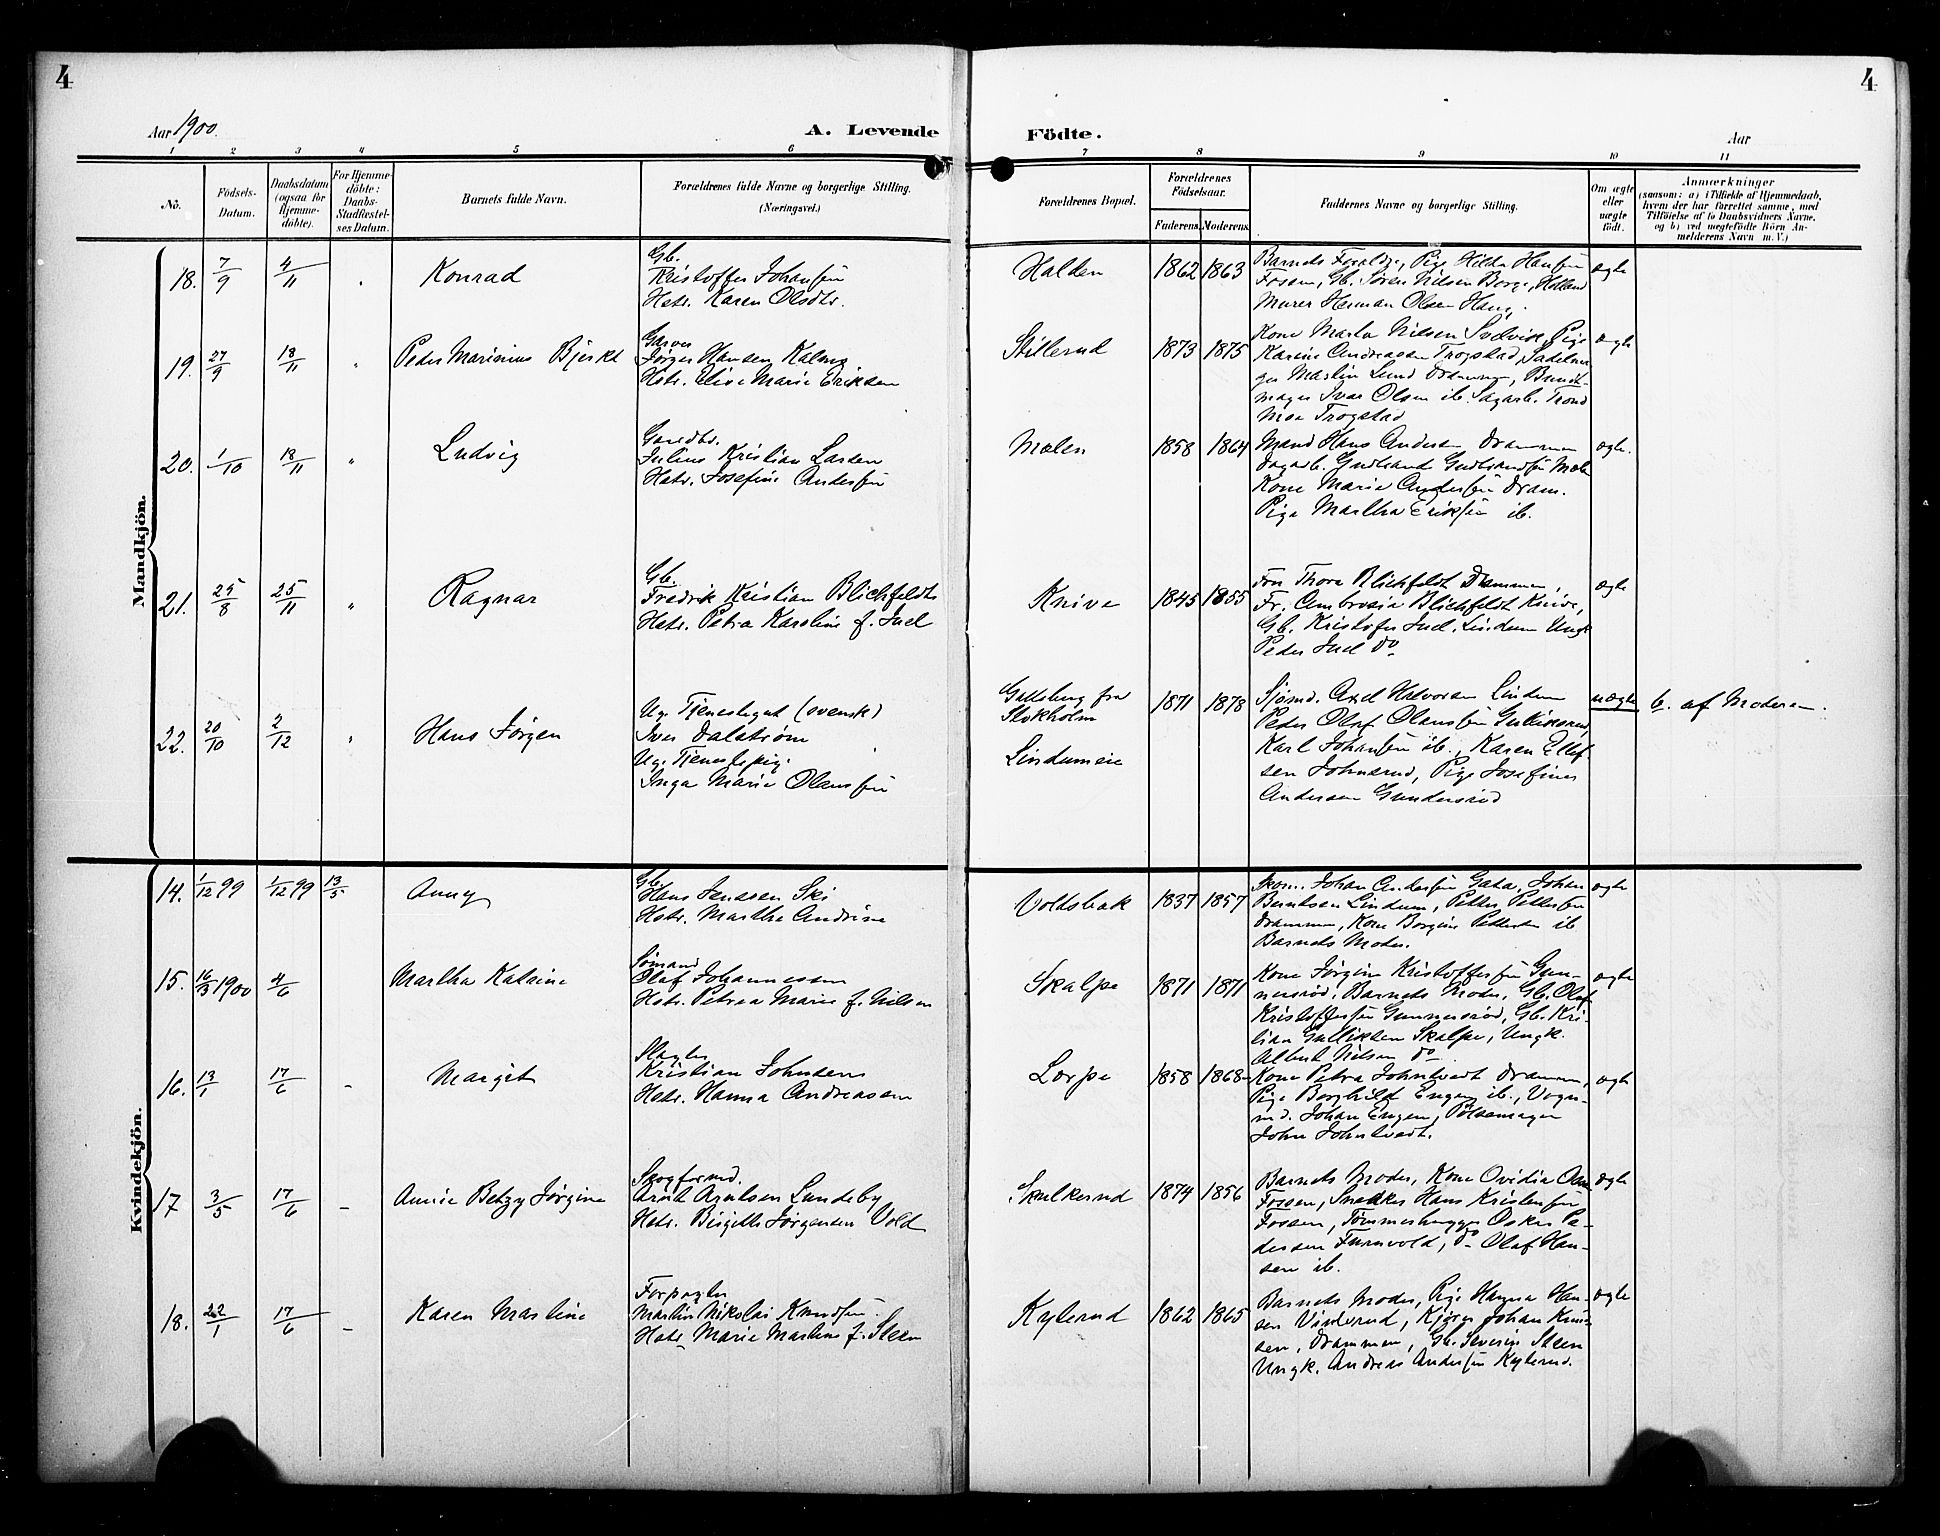 4
4
Aar 1900.
A. Levende
Födte.
Aar
1 2 3 4 5 6 7 8 9 10 11
No.
Födsels-
Datum.
Daabsdatum
(ogsaa for
Hjemme-
döbte).
For Hjemme-
döbte:
Daabs-
Stadfæstel-
ses Datum.
Barnets fulde Navn.
Forældrenes fulde Navne og borgerlige Stilling.
(Næringsvei.)
Forældrenes Bopæl.
Forældrenes
Födselsaar.
Faderens.
Moderens.
Faddernes Navne og borgerlige Stilling.
Om ægte
eller
uægte
født.
Anmærkninger
(saasom: a) i Tilfælde af Hjemmedaab,
hvem der har forrettet samme, med
Tilföielse af to Daabsvidners Navne,
og b) ved uægtefödte Börn An-
melderens Navn m. V.)
Mandkjön.
18. 7/9 4/11 " Konrad
Gb.
Kristoffer Johansen
Hstr. Karen Olsdtr.
Halden 1862 1863
Barnets Forældre, Pige Hilda Hansen
Fossen, Gb. Søren Nilsen Berge, Holland
Murer Herman Olsen Haug.
ægte
19. 27/9 18/11 " Peder Marinius Bjerke
Garver
Jørgen Hansen Kalager
Hstr. Elise Marie Eriksen
Stillerud 1873 1875
Kone Marta Nilsen Solvik, Pige
Karine Andreassen Trogstad, Sadelma-
ger Martin Lund Drammen, Bundt-
mager Ivar Olsen ib. Sagarb. Trond
Moe Trogstad
ægte
20. 1/10 18/11 " Ludvig
Gaardbr.
Julius Kristian Larsen
Hstr. Josefine Andersen
Mælen 1858 1864
Mand Hans Andersen Drammen
Dagarb. Gudbrand Gudbrandsen Mæle
Kone Marie Andersen Dram.
Pige Martha Eriksen ib.
ægte.
21. 25/8 25/11 " Ragnar
Gb.
Fredrik Kristian Blichfeldt
Hstr. Petra Karoline f. Juel
Knive 1845 1855
Fru Thora Blichfeldt Drammen,
Fr. Ambrosia Blichfeldt Knive,
Gb. Kristofer Juel, Lindum Ungk.
Peder Juel do
ægte
22. 20/10 2/12 " Hans Jørgen
Ug. Tjenestegut (svensk)
Iver Dalstrøm
Ug. Tjenestepig.
Inga Marie Olaussen
Gøteborg fra
Stokholm
Lindumeie
1871 1878
Sjømd. Axel Halvorsen Lindum
Peder Olaf Olaussen Gulliksrud,
Karl Johansen ib., Karen Ellef-
sen Johnsrud, Pige Josefine
Andersen Gundersrød
uægte b. af Moderen.
Kvindekjön.
14. 1/12 99 1/12 99 13/5 Anny
Gb.
Hans Jensen Ski
Hstr. Martha Andrine
Voldsbæk 1837 1857
Skom. Johan Andersen Gata, Johan
Berntsen Lindum, Petter Pettersen
Drammen, Kone Borgine Pettersen ib
Barnets Moder.
ægte
15. 16/3 1900 4/6 Martha Katrine
Sømand
Olaf Johannessen
Hstr. Petrea Marie f. Nilsen
Skalpe 1871 1871
Kone Jørgine Kristoffersen Gun-
nersrød, Barnets Moder, Gb. Olaf
Kristoffersen Gunnersrød, Gb. Kri-
stian Gulliksen Skalpe, Ungk.
Albert Nilsen do
ægte
16. 13/1 17/6 - Margit
Slagter
Kristian Johnsen
Hstr. Hanna Andreassen
Lorpe 1858 1868
Kone Petra Johntvedt Drammen,
Pige Borghild Engen ib., Vogn-
md. Johan Engen, Pølsemager
John Johntvedt.
ægte
17 3/5 17/6 - Annie Betzy Jørgine
Skogformd.
Arnt Arntsen Lundeby
Hstr. Birgitte Jørgensen Vold
Skulkerud 1874 1856
Barnets Moder, Kone Ovidia Aam
Fossen, Snedker Hans Kristensen
Fossen, Tømmerhugger Oskar Pe-
dersen Furuvold, do Olaf Han-
sen ib.
ægte
18. 22/1 17/6 - Karen Martine
Forpagter
Martin Nikolai Knudsen
Hstr Marie Martine f. Steen
Kylerud 1862 1865
Barnets Moder, Pige Hanna Han-
sen Vindrud, Kjører Johan Knud-
sen, Drammen, Gb. Severin Steen
Ungk. Andreas Andersen Kylerud.
ægte